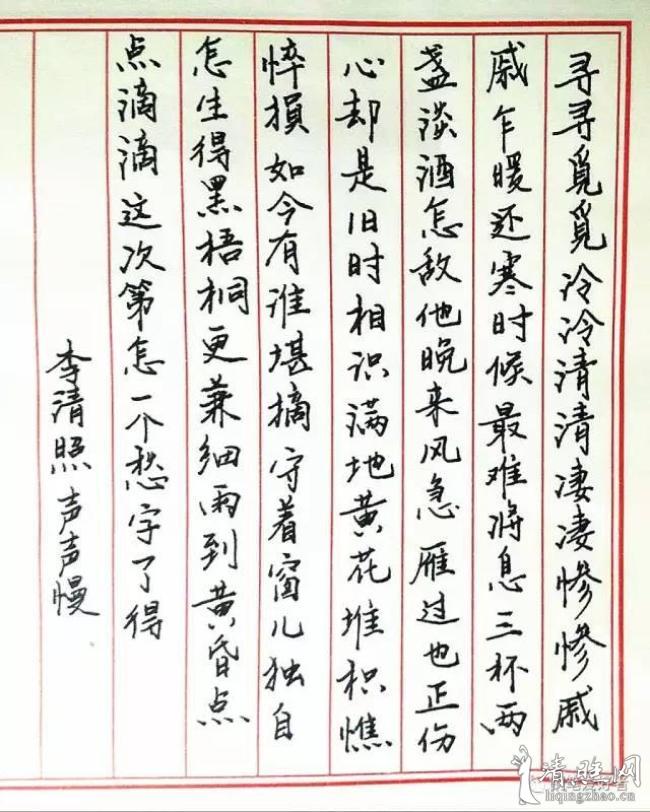 寻寻觅觅冷冷清清凄凄惨惨戚
戚乍暖还寒时候最难将息三杯两
盏淡酒怎敌他晚来风急雁过也正伤
心却是旧时相识满地黄花堆积憔
悴损如今有谁堪摘守着窗儿独自
怎生得黑梧桐更兼细雨到黄昏点
点滴滴这次第怎一个愁字了得
李清照声声慢
清照网
liqingzhao.cn